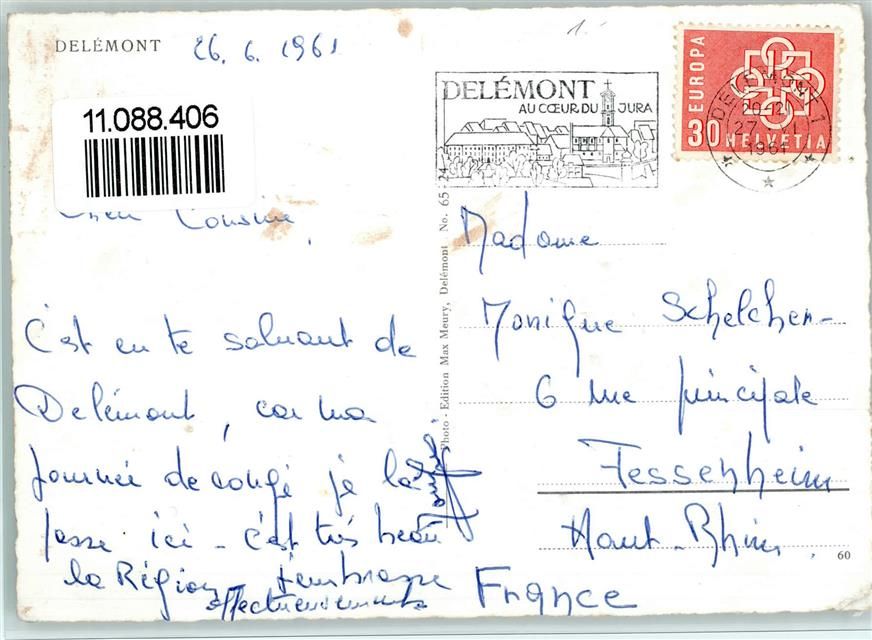 DELÉMONT
26.6.1961
11.088.406
Cher Cousine,
C'est en te saluant de
Delémont, car ma
journée de congé je la
passe ici - c'est très beau
la Région t'embrasse
affectueusement
Photo - Edition Max Meury, Delémont No. 65 24
DELÉMONT
AU CŒUR DU JURA
EUROPA
30 HELVETIA
DELÉMONT 1
1961
Madame
Monique Schelcher-
6 rue principale
Fessenheim
Haut-Rhin.
France
60